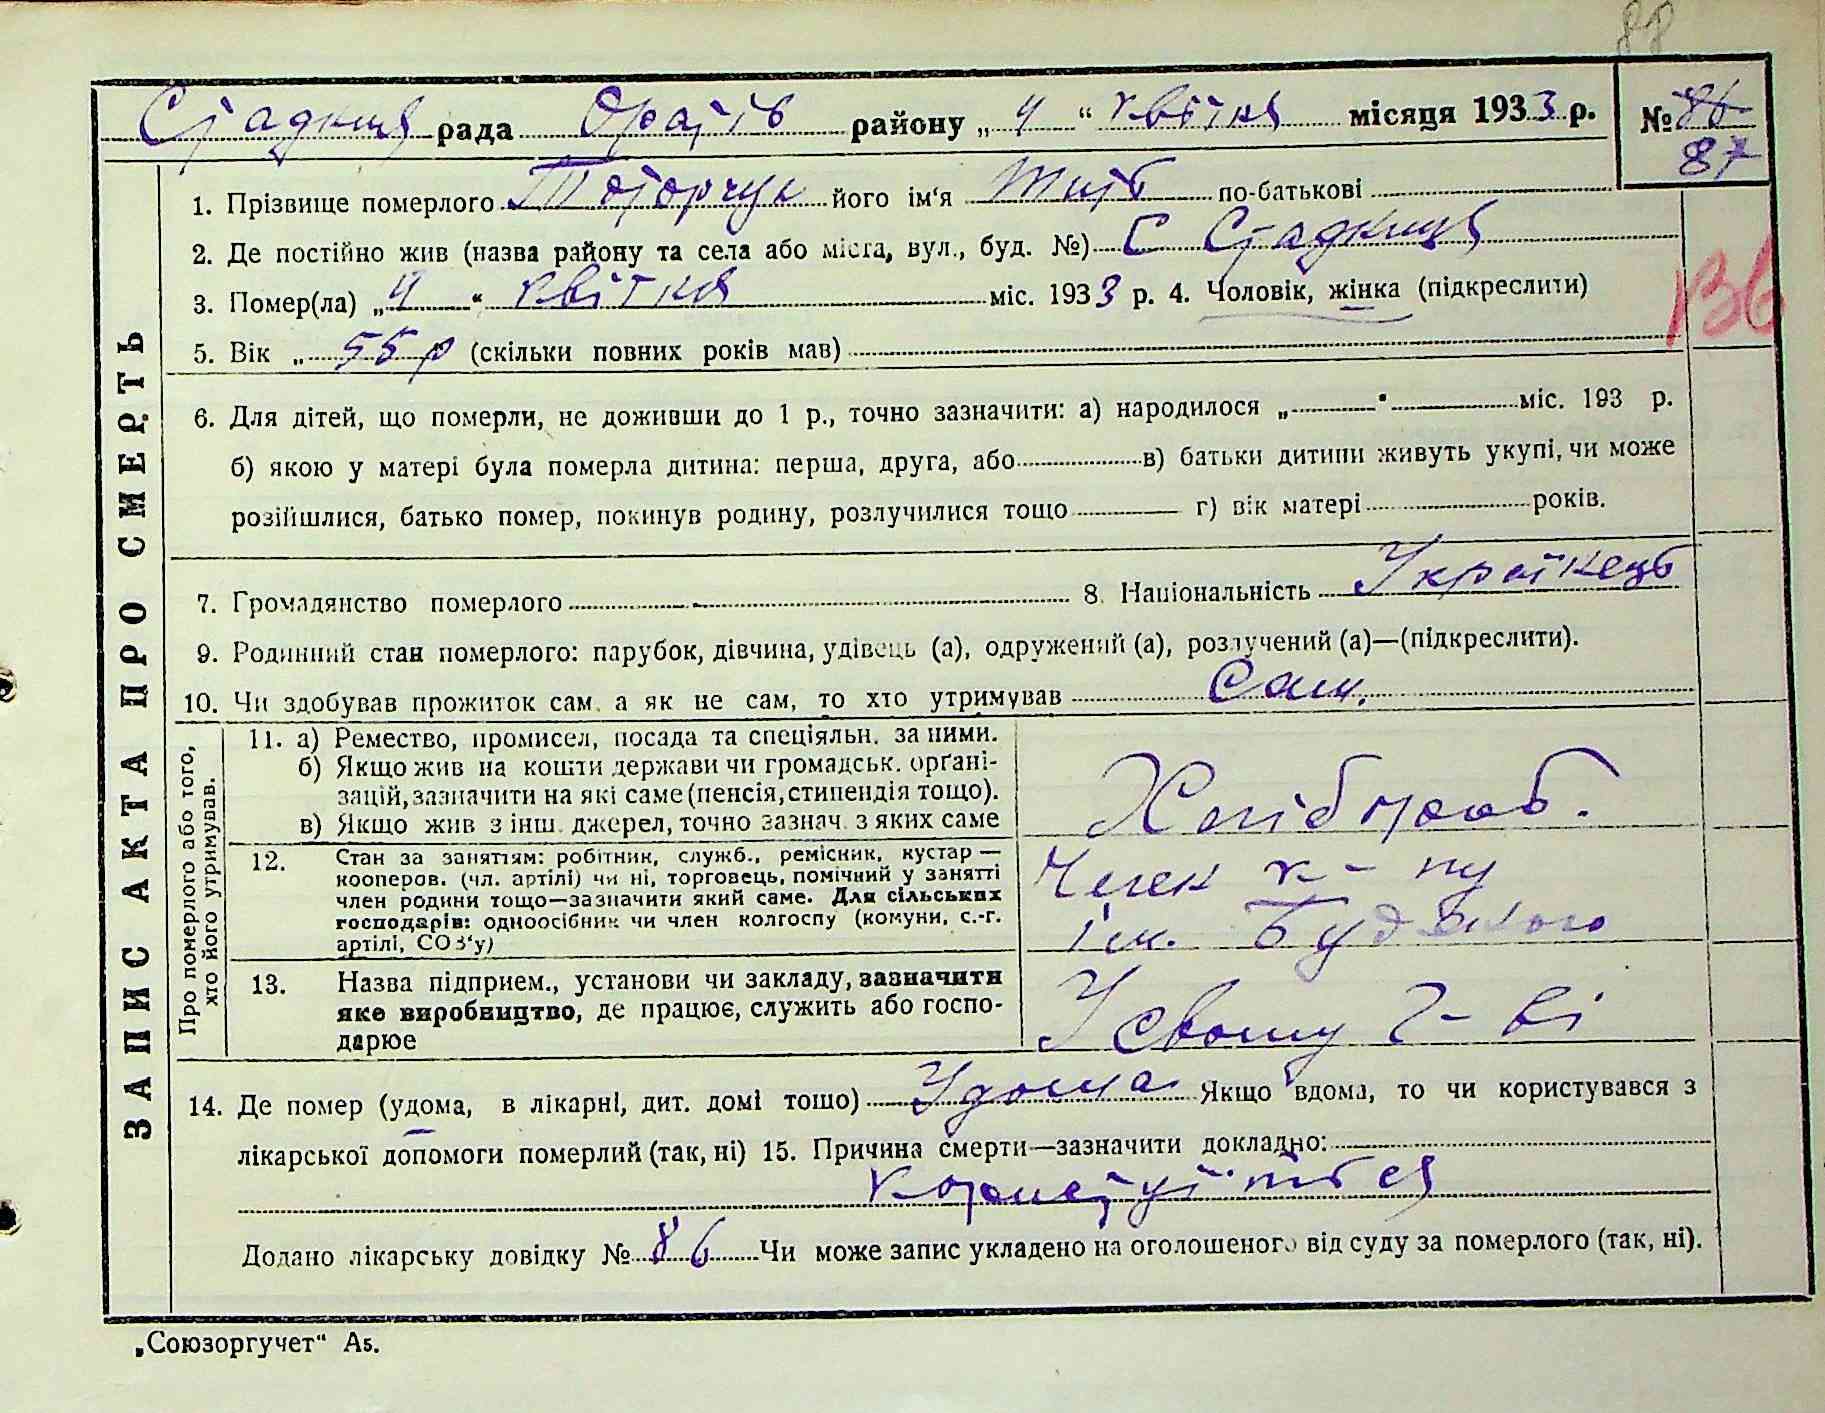 88
Стадниця рада Оратів району „ 4 “ квітня місяця 1933 р. № 86
87
1. Прізвище померлого його ім‘я по-батькові
2. Де постійно жив (назва району та села або міста, вул., буд. №) С Стадниця
3. Помер(ла) „ 4 “ квітня міс. 1933 р. 4. Чоловік, жінка (підкреслити)
136
5. Вік „ 55 р (скільки повних років мав)
6. Для дітей, що померли, не доживши до 1 р., точно зазначити: а) народилося „ “ міс. 193 р.
б) якою у матері була померла дитина: перша, друга, або в) батьки дитини живуть укупі, чи може
розійшлися, батько помер, покинув родину, розлучилися тощо г) вік матері років.
7. Громадянство померлого 8. Національність Українець
9. Родинний стан померлого: парубок, дівчина, удівець (а), одружений (а), розлучений (а)—(підкреслити).
10. Чи здобував прожиток сам, а як не сам, то хто утримував Сам.
ЗАПИС АКТА ПРО СМЕРТЬ
Про померлого або того,
хто його утримував.
11. а) Ремество, промисел, посада та спеціяльн. за ними.
б) Якщо жив на кошти держави чи громадськ. орґані-
зацій, зазначити на які саме (пенсія, стипендія тощо).
в) Якщо жив з інш. джерел, точно зазнач. з яких саме
Хлібороб.
12. Стан за занятіям: робітник, служб., ремісник, кустар —
кооперов. (чл. артілі) чи ні, торговець, помічний у занятті
член родини тощо—зазначити який саме. Для сільських
господарів: одноосібник чи член колгоспу (комуни, с.-г.
артілі, СОЗ‘у)
Член к-пу
ім.
13. Назва підприєм., установи чи закладу, зазначити
яке виробництво, де працює, служить або госпо-
дарює
У свому г-ві
14. Де помер (удома, в лікарні, дит. домі тощо) Удома Якщо вдома, то чи користувався з
лікарської допомоги померлий (так, ні) 15. Причина смерти—зазначити докладно:
Додано лікарську довідку № 86 Чи може запис укладено на оголошеного від суду за померлого (так, ні).
„Союзоргучет“ А5.